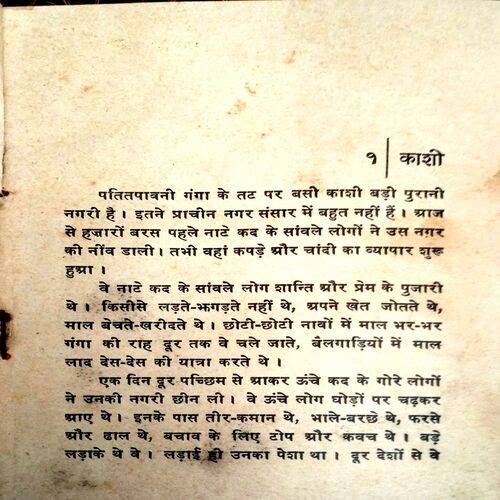 १ | काशी
पतितपावनी गंगा के तट पर बसी काशी बड़ी पुरानी
नगरी है । इतने प्राचीन नगर संसार में बहुत नहीं हैं । आज
से हज़ारों बरस पहले नाटे कद के सांवले लोगों ने उस नगर
की नींव डाली । तभी वहां कपड़े और चांदी का व्यापार शुरू
हुआ ।
वे नाटे कद के सांवले लोग शान्ति और प्रेम के पुजारी
थे । किसीसे लड़ते-झगड़ते नहीं थे, अपने खेत जोतते थे,
माल बेचते-खरीदते थे । छोटी-छोटी नावों में माल भर-भर
गंगा की राह दूर तक वे चले जाते, बैलगाड़ियों में माल
लाद देस-देस की यात्रा करते थे ।
एक दिन दूर पच्छिम से आकर ऊंचे कद के गोरे लोगों
ने उनकी नगरी छीन ली । वे ऊंचे लोग घोड़ों पर चढ़कर
आए थे । इनके पास तीर-कमान थे, भाले-बरछे थे, फरसे
और ढाल थे, बचाव के लिए टोप और कवच थे । बड़े
लड़ाके थे वे । लड़ाई ही उनका पेशा था । दूर देशों से वे